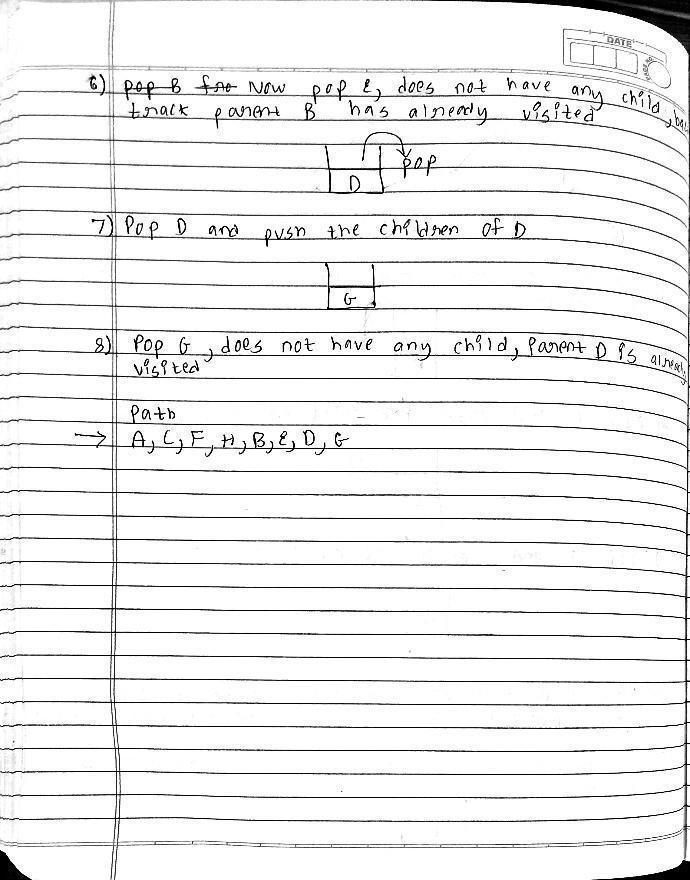 DATE
6) pop B fro Now pop E, does not have any child, bac
track parent B has already visited
pop
D
7) Pop D and push the children of D
G
8) Pop G, does not have any child, Parent D is already
visited
Path
→ A, C, F, H, B, E, D, G